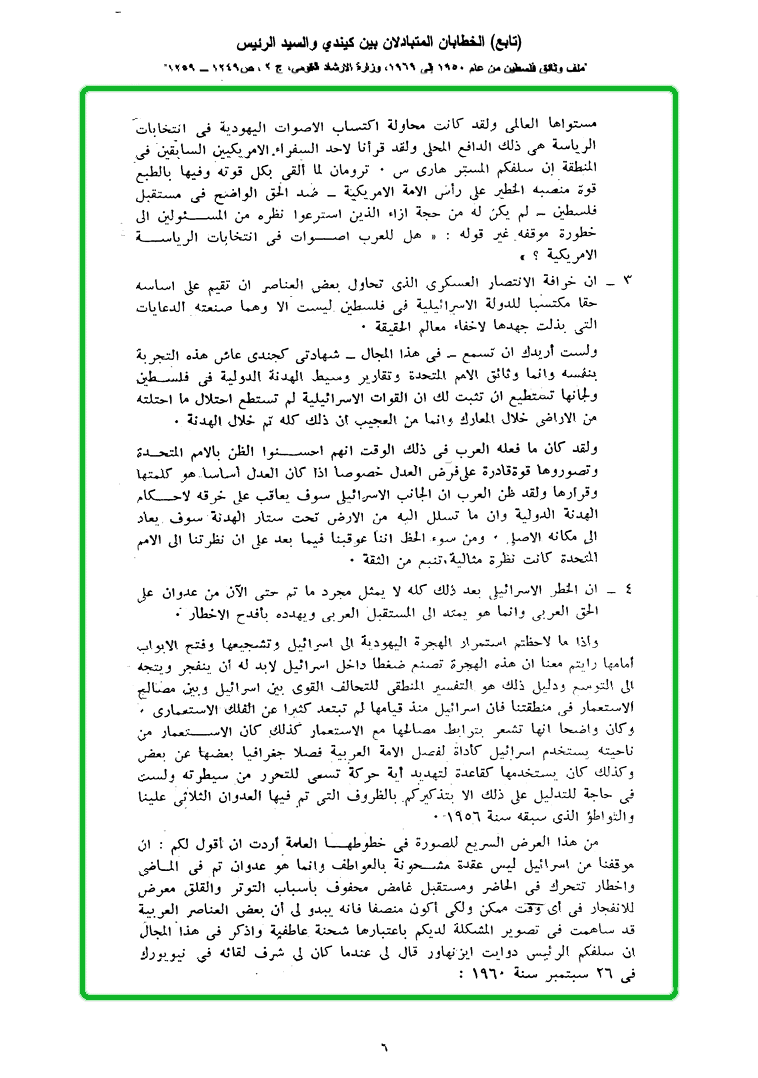 (تابع) الخطابان المتبادلان بين كيندي والسيد الرئيس
"ملف وثائق فلسطين من عام ١٩٥٠ إلى ١٩٦٩، وزارة الارشاد القومى، ج ٢ ، ص ١٢٤٩ – ١٢٥٩"
مستواها العالمى ولقد كانت محاولة اكتساب الاصوات اليهودية فى انتخابات
الرياسة هى ذلك الدافع المحلى ولقد قرأنا لاحد السفراء الامريكيين السابقين فى
المنطقة ان سلفكم المستر هارى س ٠ ترومان لما ألقى بكل قوته وفيها بالطبع
قوة منصبه الخطير على رأس الامة الامريكية – ضد الحق الواضح فى مستقبل
فلسطين – لم يكن له من حجة ازاء الذين استرعوا نظره من المسئولين الى
خطورة موقفه غير قوله : « هل للعرب اصوات فى انتخابات الرياسة
الامريكية ؟ »
٣ – ان خرافة الانتصار العسكرى الذى تحاول بعض العناصر ان تقيم على اساسه
حقا مكتسبا للدولة الاسرائيلية فى فلسطين ليست الا وهما صنعته الدعايات
التى بذلت جهدها لاخفاء معالم الحقيقة ٠
ولست أريدك ان تسمع – فى هذا المجال – شهادتى كجندى عاش هذه التجربة
بنفسه وانما وثائق الامم المتحدة وتقارير وسيط الهدنة الدولية فى فلسطين
ولجانها تستطيع ان تثبت لك ان القوات الاسرائيلية لم تستطع احتلال ما احتلته
من الاراضى خلال المعارك وانما من العجيب ان ذلك كله تم خلال الهدنة ٠
ولقد كان ما فعله العرب فى ذلك الوقت انهم احسنوا الظن بالامم المتحدة
وتصوروها قوة قادرة على فرض العدل خصوصا اذا كان العدل أساسا هو كلمتها
وقرارها ولقد ظن العرب ان الجانب الاسرائيلى سوف يعاقب على خرقه لاحكام
الهدنة الدولية وان ما تسلل اليه من الارض تحت ستار الهدنة سوف يعاد
الى مكانه الاصلى ٠ ومن سوء الحظ اننا عوقبنا فيما بعد على ان نظرتنا الى الامم
المتحدة كانت نظرة مثالية، تنبع من الثقة ٠
٤ – ان الخطر الاسرائيلى بعد ذلك كله لا يمثل مجرد ما تم حتى الآن من عدوان على
الحق العربى وانما هو يمتد الى المستقبل العربى ويهدده بأفدح الاخطار ٠
واذا ما لاحظتم استمرار الهجرة اليهودية الى اسرائيل وتشجيعها وفتح الابواب
أمامها رايتم معنا ان هذه الهجرة تصنع ضغطا داخل اسرائيل لابد له أن ينفجر ويتجه
الى التوسع ودليل ذلك هو التفسير المنطقى للتحالف القوى بين اسرائيل وبين مصالح
الاستعمار فى منطقتنا فان اسرائيل منذ قيامها لم تبتعد كثيرا عن الفلك الاستعمارى ٠
وكان واضحا انها تشعر بترابط مصالحها مع الاستعمار كذلك كان الاستعمار من
ناحيته يستخدم اسرائيل كأداة لفصل الامة العربية فصلا جغرافيا بعضها عن بعض
وكذلك كان يستخدمها كقاعدة لتهديد أية حركة تسعى للتحرر من سيطرته ولست
فى حاجة للتدليل على ذلك الا بتذكيركم بالظروف التى تم فيها العدوان الثلاثى علينا
والتواطؤ الذى سبقه سنة ١٩٥٦ ٠
من هذا العرض السريع للصورة فى خطوطها العامة أردت ان أقول لكم : ان
موقفنا من اسرائيل ليس عقدة مشحونة بالعواطف وانما هو عدوان تم فى الماضى
واخطار تتحرك فى الحاضر ومستقبل غامض محفوف بأسباب التوتر والقلق معرض
للانفجار فى أى وقت ممكن ولكى أكون منصفا فانه يبدو لى أن بعض العناصر العربية
قد ساهمت فى تصوير المشكلة لديكم باعتبارها شحنة عاطفية واذكر فى هذا المجال
ان سلفكم الرئيس دوايت ايزنهاور قال لى عندما كان لى شرف لقائه فى نيويورك
فى ٢٦ سبتمبر سنة ١٩٦٠ :
٦